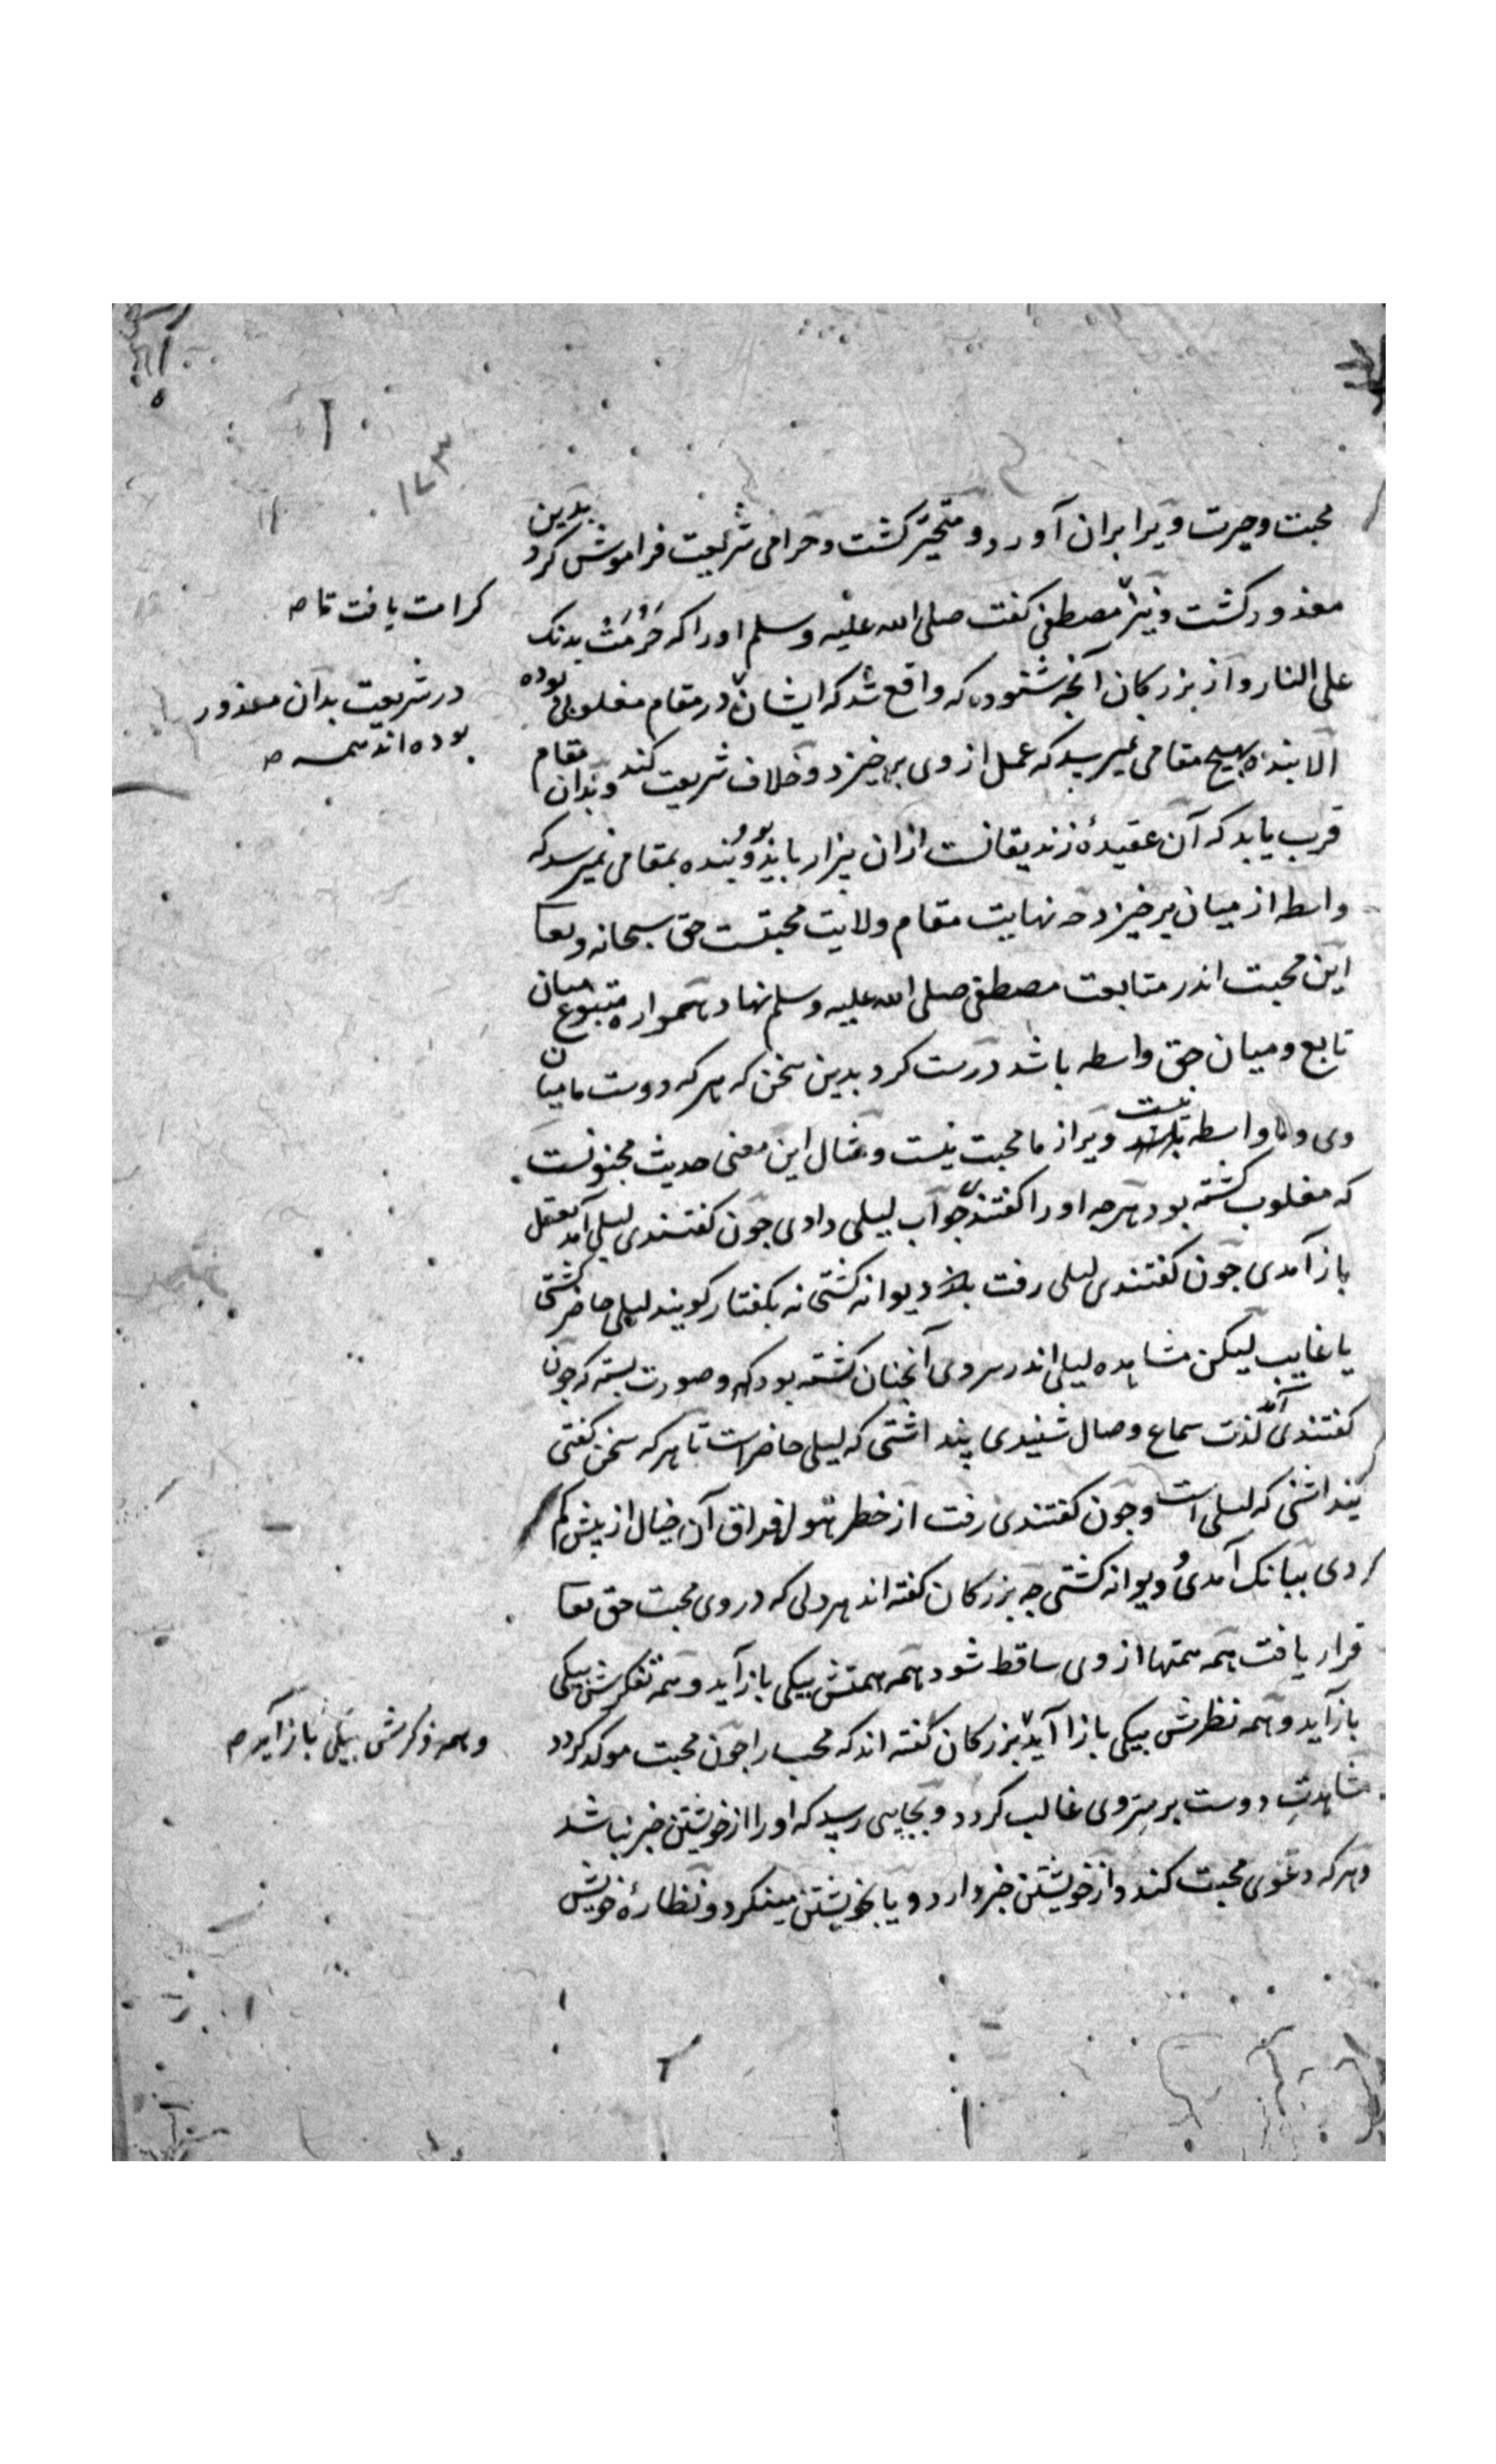 ۱۷۳
محبت وحیرت ویرا بران آورد و متحیّر کشت و حرامی شریعت فراموش کرد بدین
معذور کشت ونیز مصطفی کفت صلی الله علیه وسلم اورا که حُرِّمَتْ بدنک
کرامت یافت تا
علی النار واز بزرکان آنجه شنوده که واقع شد که ایشان در مقام مغلوبی بوده
در شریعت بدان معذور
بوده اند
الا بنده بهیج مقامی نمیرسد که عمل از وی برخیزد و خلاف شریعت کند وبدان مقام
قرب یابد که آن عقیدهٔ زندیقانست ازان بیزار باید بود وبنده بمقامی نمیرسد که
واسطه از میان برخیزد جه نهایت مقام ولایت محبتست حق سبحانه وتعا
این محبت اندر متابعت مصطفی صلی الله علیه وسلم نهاد همواره متبوع میان
تابع ومیان حق واسطه باشد درست کرد بدین سخن که هر که دوست ما میان
وی وما واسطه نیست ویرا از ما محبت نیست ومثال این معنی حدیث مجنونست
که مغلوب کشته بود هرجه اورا کفتندی جواب لیلی دادی جون کفتندی لیلی آمد بعقل
باز آمدی جون کفتندی لیلی رفت دیوانه کشتی نه بکفتار کویند لیلی حاضر کشتی
یا غایب لیکن مشاهده لیلی اندر سر وی آنجنان کشته بود وصورت بسته که جون
کفتندی آمد لذت سماع وصال شنیدی پنداشتی که لیلی حاضراست تا هر که سخن کفتی
پنداشتی که لیلی است وجون کفتندی رفت از خطر هول فراق آن خیال از پیش کم
کردی ببانک آمدی و دیوانه کشتی جه بزرکان کفته اند هر دلی که در وی محبت حق تعا
قرار یافت همه همتها از وی ساقط شود همه همتش بیکی باز آید وهمه تفکرش بیکی
باز آید وهمه نظرش بیکی باز آید بزرکان کفته اند که محب را جون محبت موکد کردد
وهمه ذکرش بیکی باز آید
مشاهدتِ دوست بر سِرّ وی غالب کردد وبجایی رسد که اورا از خویشتن خبر نباشد
وهر که دعوی محبت کند واز خویشتن خبر دارد و یا بخویشتن مینکرد ونظارهٔ خویش